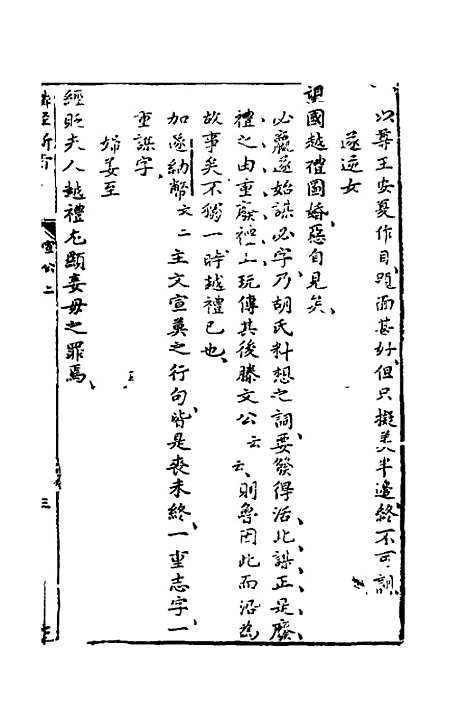 以尊王安夏作目題面甚好但只擬美半邊終不可訓
遂逆女
望國越禮圖婚惡自見矣
必嬴遂始謀必字乃胡氏料想之詞要發得活此謀正是廢
禮之由重廢禮上玩傳其後滕文公云云則魯因此而沿為
故事矣不獨一時越禮已也
加遂納幣文二主文宣莫之行句皆是喪未終一重志字一
重謀字
婦姜至
經貶夫人越禮尤顯妾母之罪焉
宣公二
三